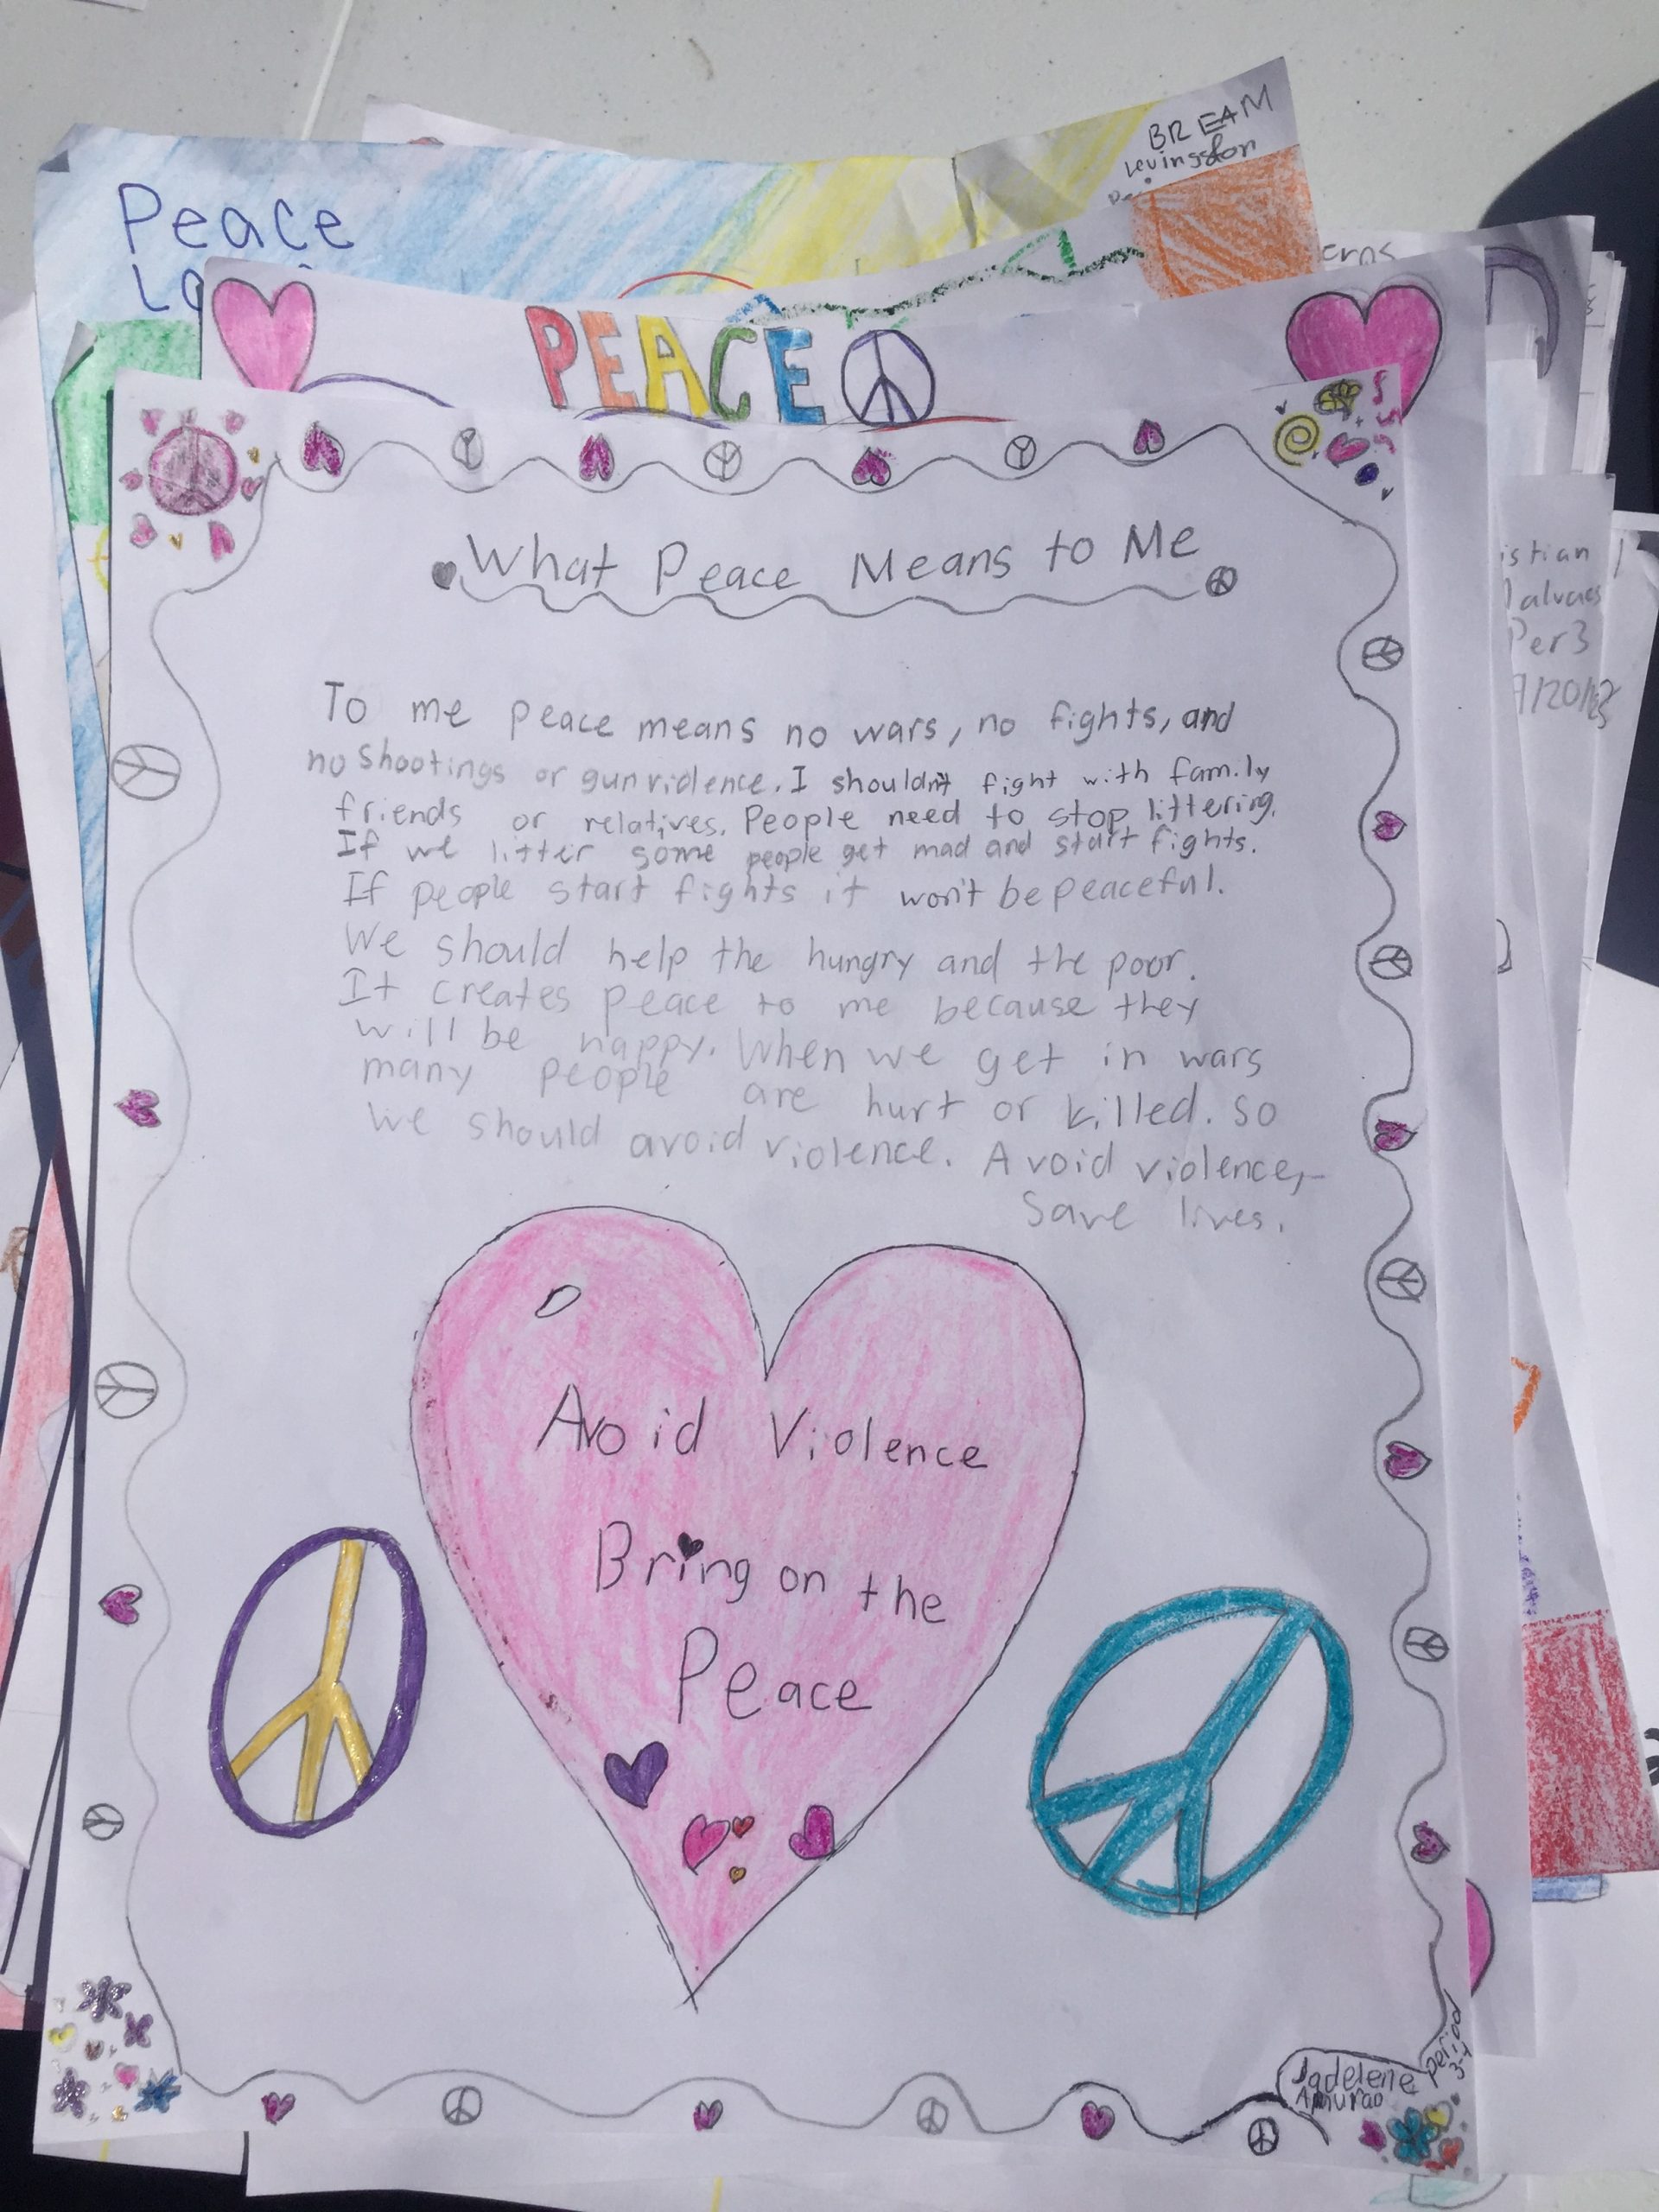 BREAM
Levingston
Peace
PEACE
istian
Per 3
What Peace Means to Me
To me peace means no wars, no fights, and
no shootings or gun violence. I shouldn't fight with family
friends or relatives. People need to stop littering.
If we litter some people get mad and start fights.
If people start fights it won't be peaceful.
We should help the hungry and the poor.
It creates peace to me because they
will be happy. When we get in wars
many people are hurt or killed. So
we should avoid violence. Avoid violence,
Save lives.
Avoid Violence
Bring on the
Peace
Jadelene
Amurao
period
3-4